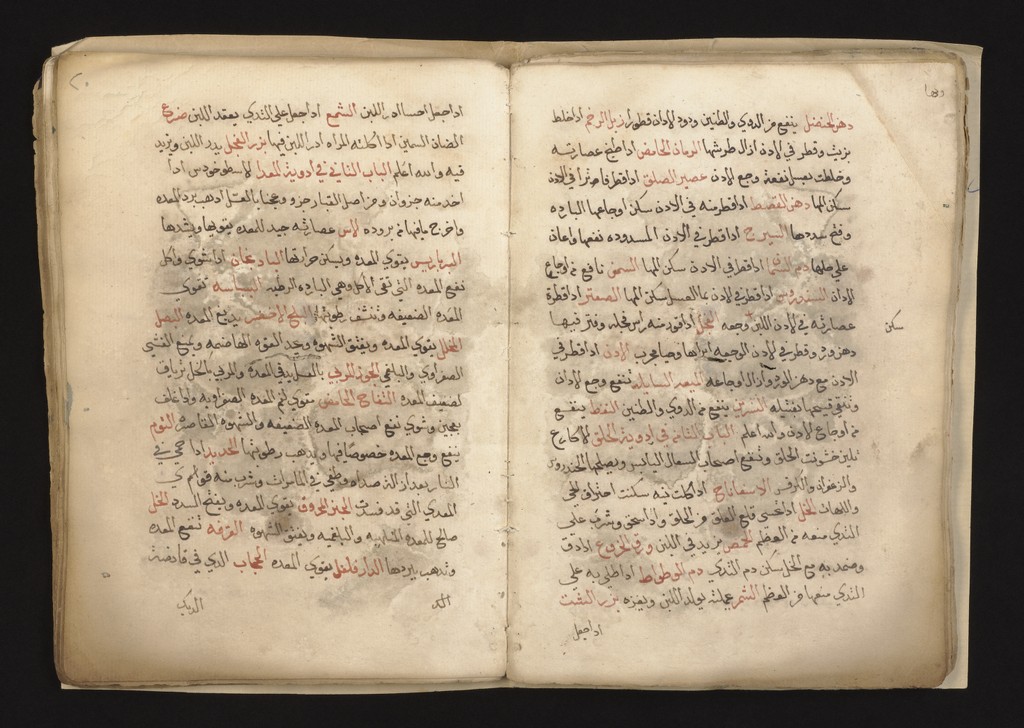 دهن الحنضل ينفع من الدوي والطنين ودود الادان قطورا زبل الرخم اذا خلط
بزيت وقطر في الادن ازال طرشها الرمان الحامض اذا طبخ عصارته
وخلطت بعسل نفعة وجع الادن عصير الصلق اذا قطر فاترا في الادن
سكن المها دهن القسط اذا قطر منه في الادن سكن اوجاعها البارده
وفتح سددها السيرج اذا قطر في الادن المسدوده نفعها واعان
علي حلها دم اذا قطر في الادن سكن المها السمن نافع من اوجاع
الادان السندروس اذا قطر في الادن بماء العسل سكن المها الصعتر اذا قطرة
عصارته في الادن اللبن وجعه الخل اذا فيها
سكن
دهن ورد وقطر في الادن الوجعه ابراها وصيا مجرب الادن اذا قطر في
الادن مع دهن الورد ازال اوجاعه السايله تنفع وجع الادان
وتنقي قيحها بفتيله النسرين ينفع من الدوي والطنين النفط ينفع
من اوجاع الادن والله اعلم الباب الثامن في ادوية الحلق الاكارع
تلين خشونت الحلق وتنفع اصحاب السعال اليابس ويصلحها
والزعفران والكرفس الاسفاناخ اذا كلت نيه سكنت احتراق
واللهاث الخل اذا تحسي قلع العلق من الحلق واذا سحق وشرب علي
الثدي منعه من العظم الحمص يزيد في اللبن ورق الخروع اذا دق
وضمد به مع الخل سكن دم الثدي دم الوطواط اذا طلي به علي
الثدي منعها من العظم الشمر يولد اللبن ويغزره بزر الشبت
اذا جعل
اذا جعل احسا ادر اللبن الشمع اذا جعل علي الثدي يعقد اللبن ضرع
الضان السمين اذا اكلته المراه ادر اللبن فيها بزر الفجل يدر اللبن ويزيد
فيه والله اعلم الباب التاني في أدوية المعدا الاسطوخودس اذا
اخد منه جزوان ومن اصل الكبار جزو وعجنا بالعسل اذهب برد المعده
واخرج ما فيها من بروده الاس عصارته جيد للمعده يقويها ويشدها
الامبرباريس يقوي المعده ويسكن حرارتها البادنجان اذا شوي واكل
نفع المعده التي تقي الاكل وهي البارده الرطبه البسباسه تقوي
المعده الضعيفه وتنشف رطوبتها البلح الاخضر يدبغ المعده البصل
المخلل يقوي المعده ويفتق الشهوه وجد القوه الهاضمه ويمنع القي
الصفراوي والبلغمي الجوز المربي بالعسل يدفي المعده والمربي بالخل ترياق
لضعيف المعده التفاح الحامض مقوي لفم المعده الصفراويه واذا غلف
بعجين وشوي نفع اصحاب المعده الضعيفه والشهوه القاصره الثوم
ينفع وجع المعده خصوصا فمها ويدهب رطوبتها الحديد اذا حمي في
النار بعد ازالت صداه وطفي في الما مرات وشرب منه قوام
المعدي التي قد فسدت الجبن المحروق يقوي المعده ويفتح السدد الخل
صالح للمعده الملتهبه والبلغميه ويفتق الشهوه القرفه تنفع المعده
وتدهب ببردها الدار فلفل يقوي المعده الحجاب الدي في قانصة
الديك